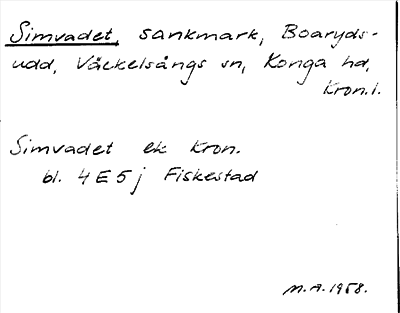 Simvadet, sankmark, Boaryds-
udd, Väckelsångs sn, Konga hd,
Kron.l.
Simvadet ek Kron.
bl. 4E5j Fiskestad
M.A.1958.